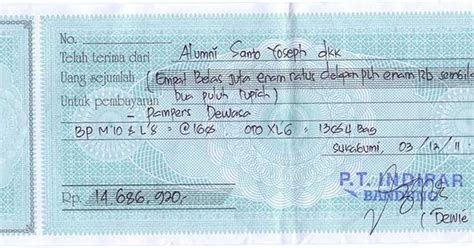 No.
Telah terima dari Alumni Santo Yoseph dkk
Uang sejumlah (Empat Belas juta enam ratus delapan plh enam rb sembilan
Untuk pembayaran dua puluh rupiah)
- Pampers Dewasa
BP M'10 & L'8 = @168 OTO XL6 = 13654 Bag
Sukabumi, 03/12/11
P.T. INDIRAR
BANDUNG
Rp. 14.686.920,-
(Dewie